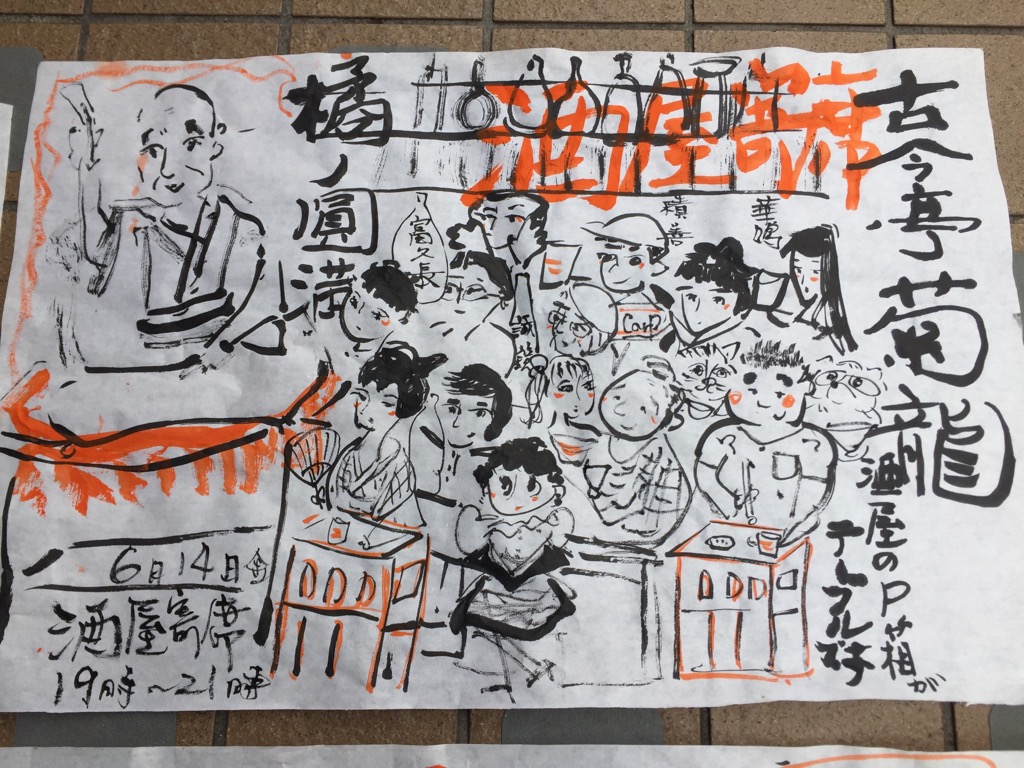 古今亭菊龍
酒屋のP箱が
テーブルです
酒屋寄席
華鳩
積善
Carp
富久長
橘ノ圓満
6月14日金
酒屋寄席
19時～21時